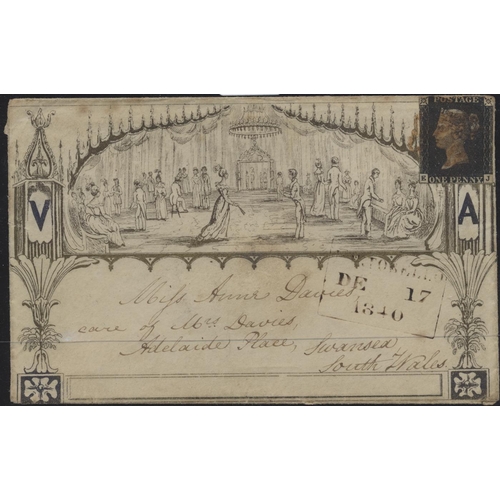 POSTAGE
ONE PENNY
V A
DE 17
1840
Miss Anne Davies
care of Mrs Davies,
Adelaide Place, Swansea
South Wales